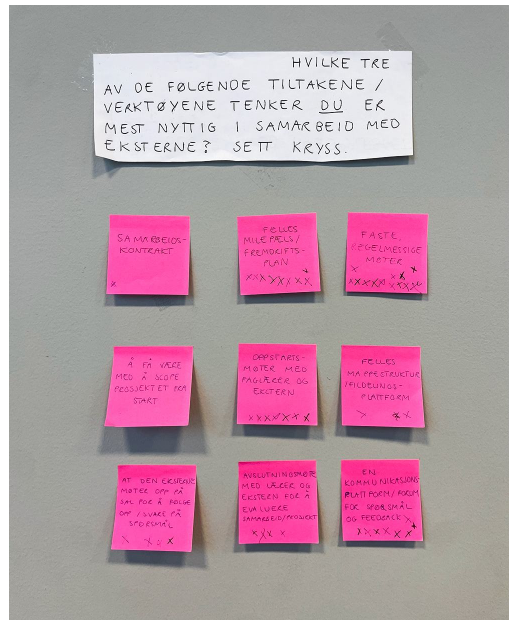 HVILKE TRE
AV DE FØLGENDE TILTAKENE /
VERKTØYENE TENKER DU ER
MEST NYTTIG I SAMARBEID MED
EKSTERNE? SETT KRYSS.
SAMARBEIDS-
KONTRAKT
x
FELLES
MILEPÆLS/
FREMDRIFTS-
PLAN
FASTE,
REGELMESSIGE
MØTER
Å FÅ VÆRE
MED Å SCOPE
PROSJEKTET FRA
START
OPPSTARTS-
MØTER MED
FAGLÆRER OG
EKSTERN
FELLES
MAPPESTRUKTUR
/FILDELINGS-
PLATTFORM
AT DEN EKSTERNE
MØTER OPP PÅ
SAL FOR Å FØLGE
OPP / SVARE PÅ
SPØRSMÅL
AVSLUTNINGSMØTE
MED LÆRER OG
EKSTERN FOR Å
EVALUERE
SAMARBEID/PROSJEKT
EN
KOMMUNIKASJONS
PLATTFORM/FORUM
FOR SPØRSMÅL
OG FEEDBACK